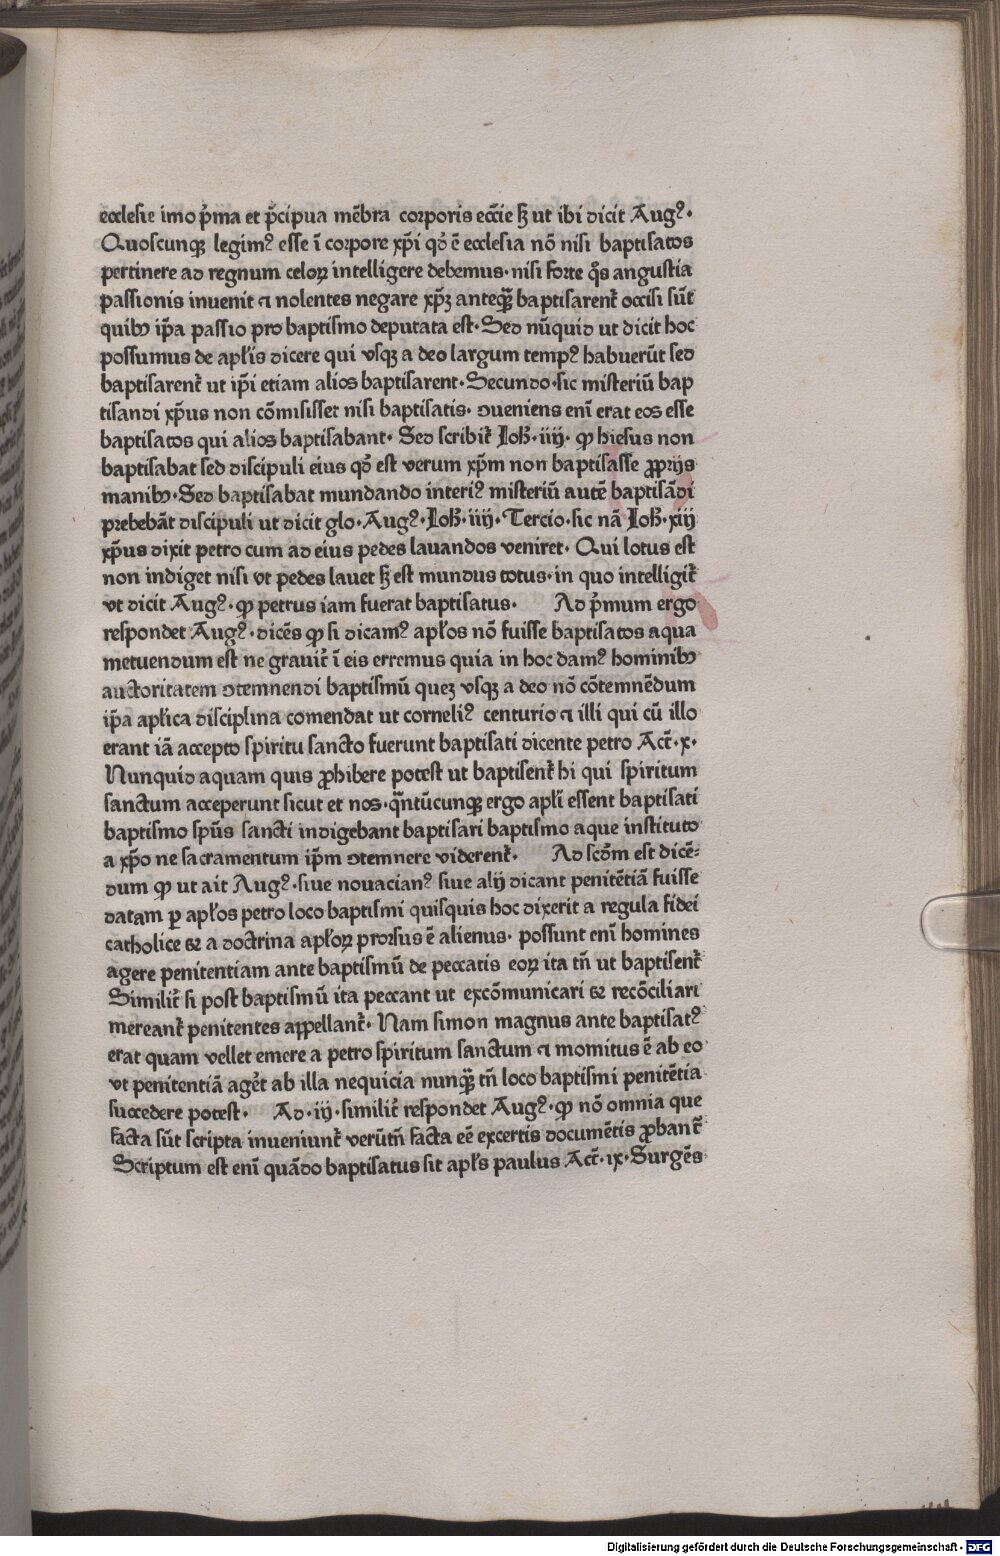 ecclesie imo p̾ma et p̾cipua mēbra corporis ecc̄ie hꝫ ut ibi dicit Augꝰ.
Quoscunqꝫ legimꝰ esse ī corpore xp̄i qd̾ ē ecclesia nō nisi baptisatos
pertinere ad regnum celoꝝ intelligere debemus. nisi forte q̄s angustia
passionis inuenit ⁊ nolentes negare xp̄ꝫ anteqꝫ̄ baptisarent̾ occisi sūt
quibꝰ ip̄a passio pro baptismo deputata est. Sed nūquid ut dicit hoc
possumus de ap̄lis dicere qui vsqꝫ a deo largum tempꝰ habuerūt sed
baptisarent̾ ut ip̄i etiam alios baptisarent. Secundo. sic misteriū bap
tisandi xp̄us non cōmisisset nisi baptisatis. ꝯueniens enī erat eos esse
baptisatos qui alios baptisabant. Sed scribit̾ Joh̄. iiij. ꝙ hiesus non
baptisabat sed discipuli eius qd̾ est verum xp̄m non baptisasse ꝓprijs
manibꝰ. Sed baptisabat mundando interiꝰ misteriū autē baptisādi
prebebāt discipuli ut dicit glo. Augꝰ. Joh̄. iiij. Tercio. sic nā Joh̄. xiij
xp̄us dixit petro cum ad eius pedes lauandos veniret. Qui lotus est
non indiget nisi vt pedes lauet hꝫ est mundus totus. in quo intelligit̾
vt dicit Augꝰ. ꝙ petrus iam fuerat baptisatus. Ad p̾mum ergo
respondet Augꝰ. dicēs ꝙ si dicamꝰ ap̄los nō fuisse baptisatos aqua
metuendum est ne grauit̾ ī eis erremus quia in hoc damꝰ hominibꝰ
auctoritatem ꝯtemnendi baptismū queꝫ vsqꝫ a deo nō cōtemnēdum
ip̄a ap̄lica disciplina comendat ut corneliꝰ centurio ⁊ illi qui cū illo
erant iā accepto spiritu sancto fuerunt baptisati dicente petro Act̾. x.
Nunquid aquam quis ꝓhibere potest ut baptisent̾ hi qui spiritum
sanctum acceperunt sicut et nos. q̄ntūcunqꝫ ergo ap̄li essent baptisati
baptismo sp̄us sancti indigebant baptisari baptismo aque instituto
a xp̄o ne sacramentum ip̄m ꝯtemnere viderent̾. Ad scd̄m est dicē⸗
dum ꝙ ut ait Augꝰ. siue nouacianꝰ siue alij dicant penitētiā fuisse
datam ꝑ ap̄los petro loco baptismi quisquis hoc dixerit a regula fidei
catholice ⁊ a doctrina ap̄loꝝ prorsus ē alienus. possunt enī homines
agere penitentiam ante baptismū de peccatis eoꝝ ita tn̄ ut baptisent̾
Similit̾ si post baptismū ita peccant ut excōmunicari ⁊ recōciliari
mereant̾ penitentes appellant̾. Nam simon magnus ante baptisatꝰ
erat quam vellet emere a petro spiritum sanctum ⁊ momitus ē ab eo
vt penitentiā aget̾ ab illa nequicia nunqꝫ̄ tn̄ loco baptismi penitētia
succedere potest. Ad. iij. similit̾ respondet Augꝰ. ꝙ nō omnia que
facta sūt scripta inueniunt̾ verūtn̄ facta eē excertis documētis ꝓbant̾
Scriptum est enī quādo baptisatus sit ap̄ls paulus Act̾. ix. Surgēs
Digitalisierung gefördert durch die Deutsche Forschungsgemeinschaft - DFG